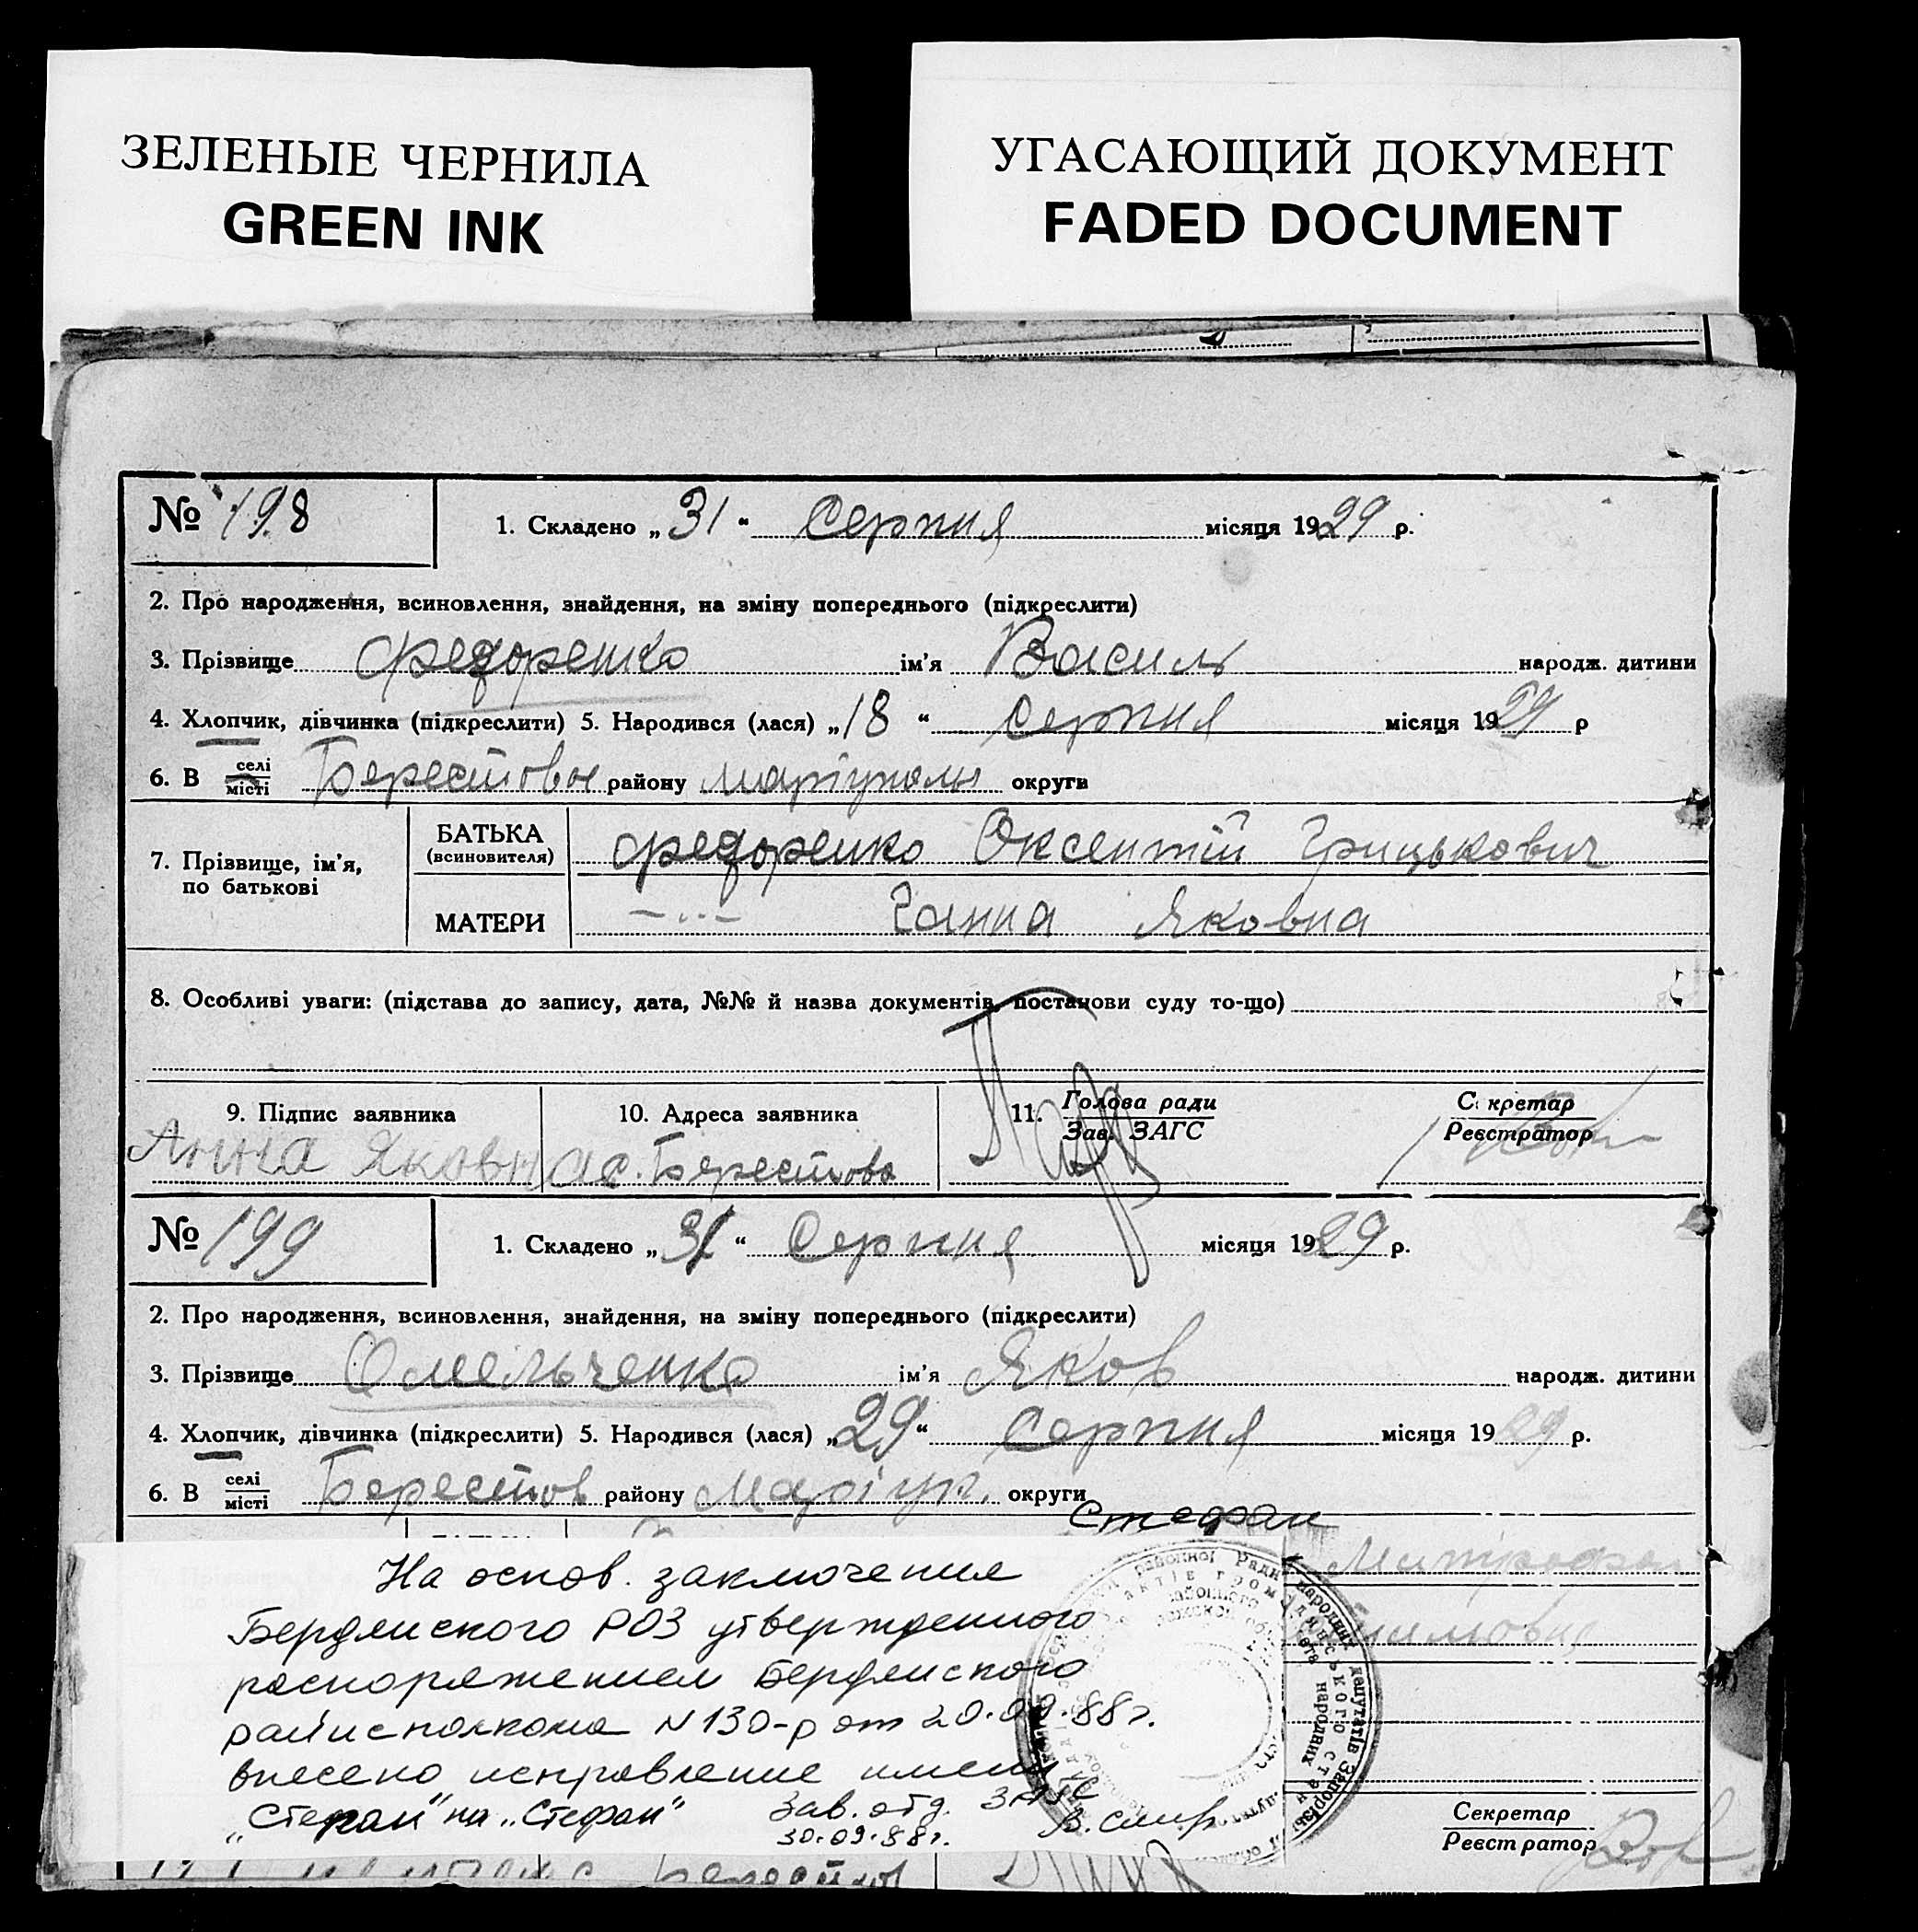 ЗЕЛЕНЫЕ ЧЕРНИЛА
GREEN INK
УГАСАЮЩИЙ ДОКУМЕНТ
FADED DOCUMENT
№ 198 1. Складено „31“ Серпня місяця 1929 р.
2. Про народження, всиновлення, знайдення, на зміну попереднього (підкреслити)
3. Прізвище Федоренко ім'я Василь народж. дитини
4. Хлопчик, дівчинка (підкреслити) 5. Народився (лася) „18“ Серпня місяця 1929 р
6. В селі місті Берестовы району Маріуполь округи
7. Прізвище, ім'я, по батькові
БАТЬКА (всиновителя) Федоренко Оксентій Грицькович
МАТЕРИ —...— Ганна Яковна
8. Особливі уваги: (підстава до запису, дата, №№ й назва документів, постанови суду то-що)
9. Підпис заявника 10. Адреса заявника 11. Голова ради Зав. ЗАГС Секретар Реєстратор
Анна Яковна с. Берестова
№ 199 1. Складено „31“ Серпня місяця 1929 р.
2. Про народження, всиновлення, знайдення, на зміну попереднього (підкреслити)
3. Прізвище Омельченко ім'я Яков народж. дитини
4. Хлопчик, дівчинка (підкреслити) 5. Народився (лася) „29“ Серпня місяця 1929 р.
6. В селі місті Берестов району Маріуп. округи
Стефан
Митрофан
На основ. заключения
Бердянского РОЗ утвержденного
распоряжением Бердянского
райисполкома N 130-р от 20.09.88г.
внесено исправление имени
„Степан" на „Стефан" Зав. отд. ЗАГС
30.09.88г.
Секретар
Реєстратор